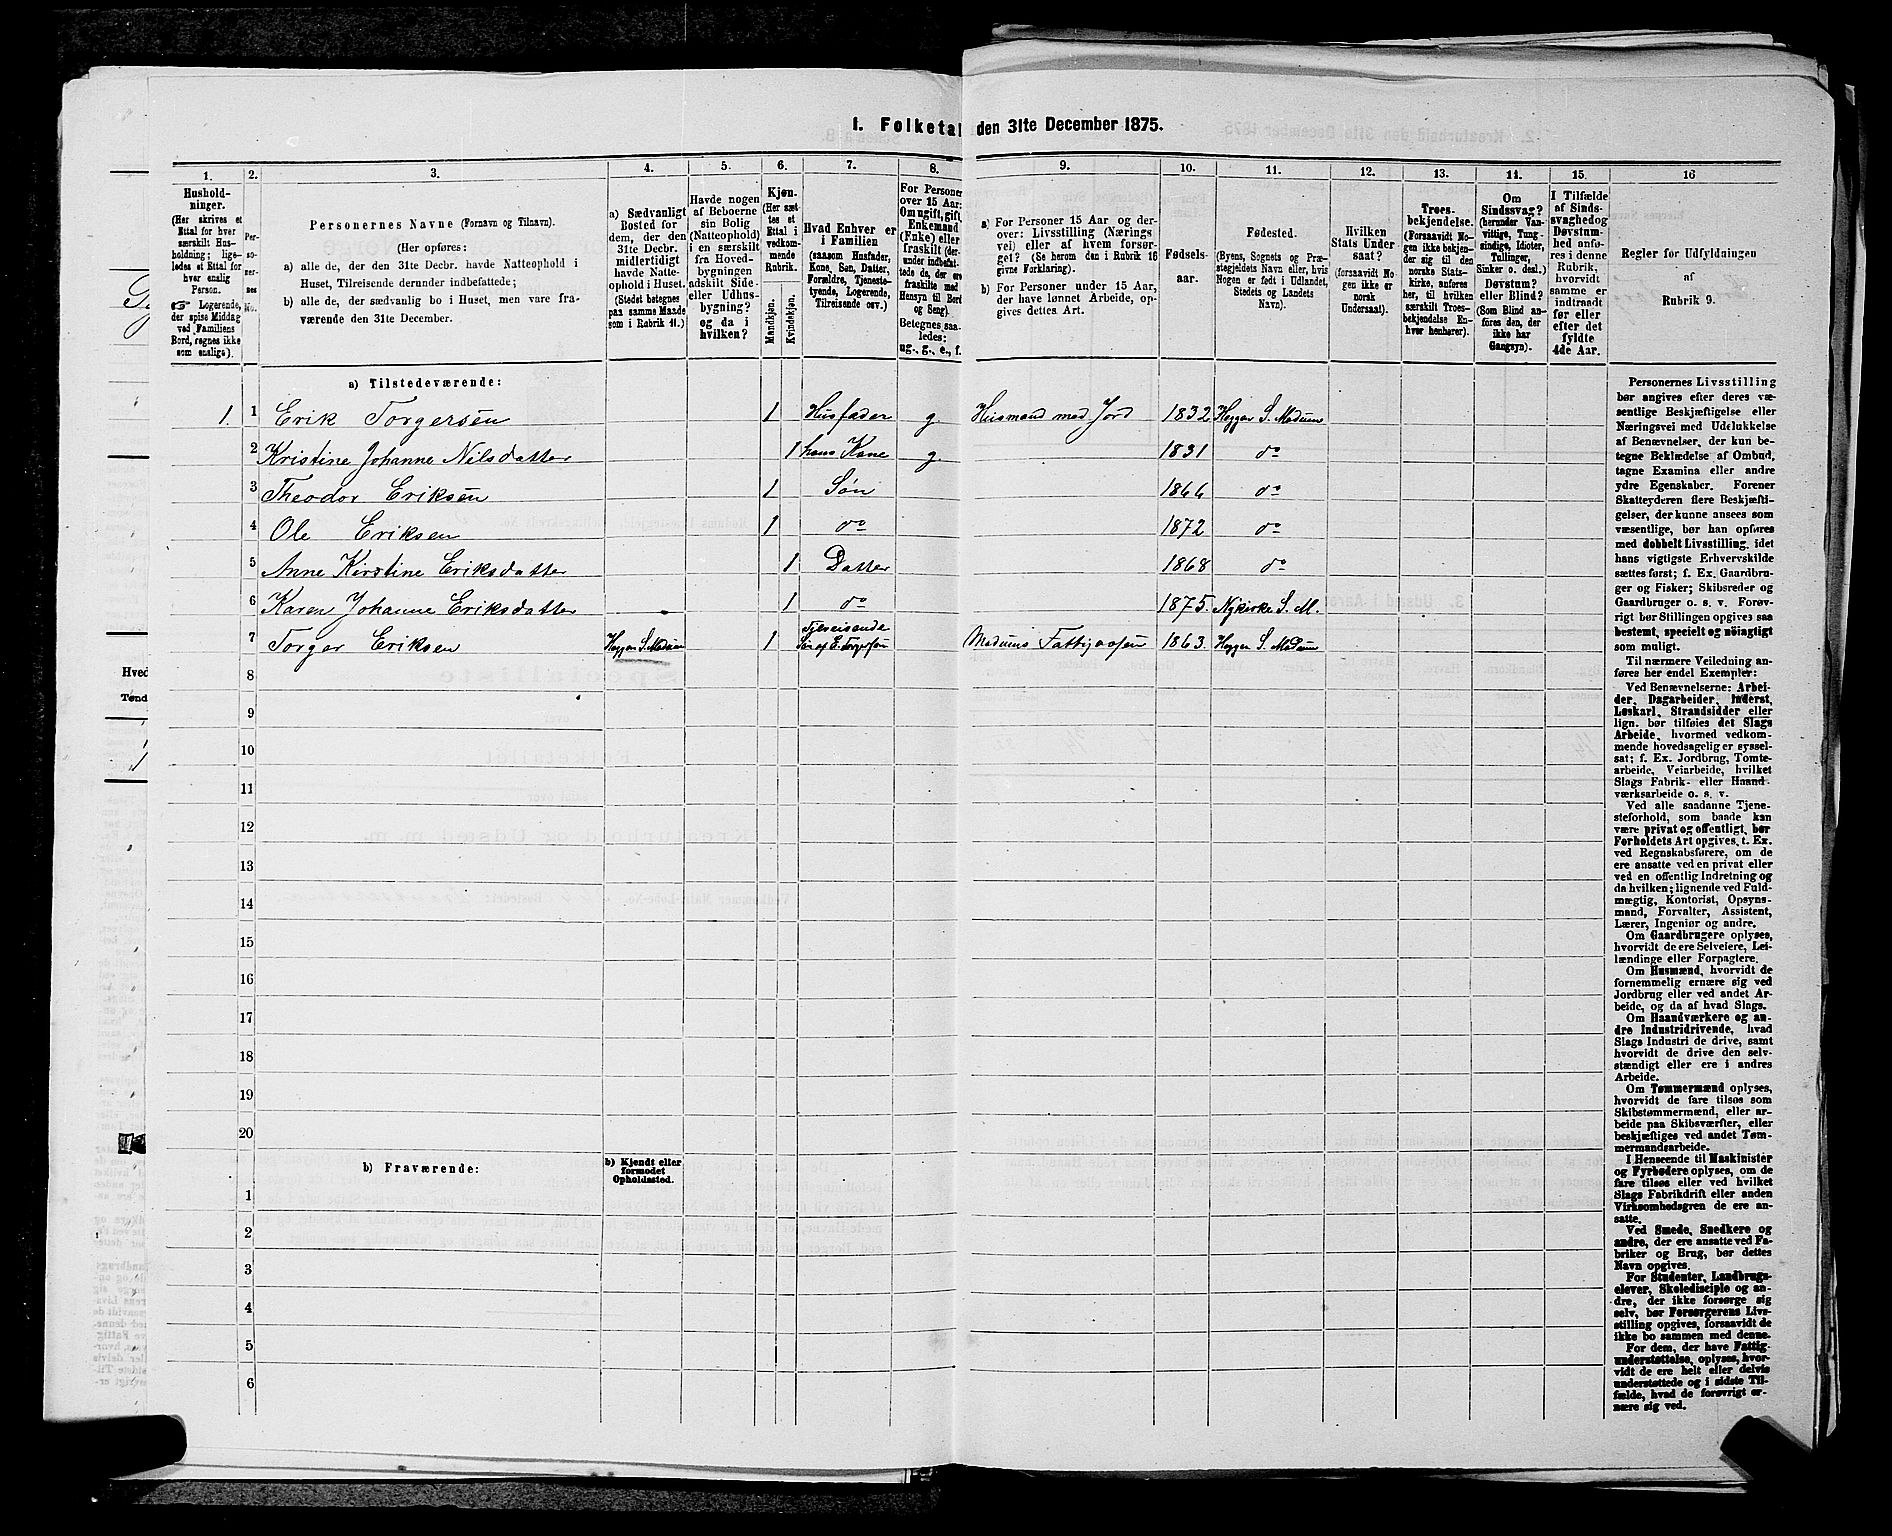 1. Folketal den 31te December 1875.
1. 2. 3. 4. 5. 6. 7. 8. 9. 10. 11. 12. 13. 14. 15. 16
Hushold-
ninger.
(Her skrives et
Ettal for hver
særskilt Hus-
holdning; lige-
ledes et Ettal for
hver enslig
Person.
☞ Logerende,
der spise Middag
ved Familiens
Bord, regnes ikke
som enslige).
Per-
so-
ner-
nes
No.
Personernes Navne (Fornavn og Tilnavn).
(Her opføres:
a) alle de, der den 31te Decbr. havde Natteophold i
Huset, Tilreisende derunder indbefattede;
b) alle de, der sædvanlig bo i Huset, men vare fra-
værende den 31te December.
a) Sædvanligt
Bosted for
dem, der den
31te Decbr.
midlertidigt
havde Natte-
ophold i Huset.
(Stedet betegnes
paa samme Maade
som i Rubrik 11.)
Havde nogen
af Beboerne
sin Bolig
(Natteophold)
i en særskilt
fra Hoved-
bygningen
adskilt Side-
eller Udhus-
bygning?
og da i
hvilken?
Kjøn.
(Her sæt-
tes et
Ettal i
vedkom-
mende
Rubrik.
Mandkjøn.
Kvindekjøn.
Hvad Enhver er
i Familien
(saasom Husfader,
Kone, Søn, Datter,
Forældre, Tjeneste-
tyende, Logerende,
Tilreisende osv.)
For Personer
over 15 Aar:
Om ugift, gift,
Enkemand
(Enke) eller
fraskilt (der-
under indbefat-
tede de, der ere
fraskilte med
Hensyn til Bord
og Seng).
Betegnes saa-
ledes:
ug., g., e., f.
a) For Personer 15 Aar og der-
over: Livsstilling (Nærings
vei) eller af hvem forsør-
get? (Se herom den i Rubrik 16
givne Forklaring).
b) For Personer under 15 Aar,
der have lønnet Arbeide, op-
gives dettes Art.
Fødsels-
aar.
Fødested.
(Byens, Sognets og Præ-
stegjeldets Navn eller, hvis
Nogen er født i Udlandet,
Stedets og Landets
Navn).
Hvilken
Stats Under-
saat?
(forsaavidt No-
gen ikke er
norsk
Undersaat).
Troes-
bekjendelse.
(Forsaavidt No-
gen ikke bekjen-
der sig til den
norske Stats-
kirke, anføres
her, til hvilken
særskilt Troes-
bekjendelse En-
hver henhører).
Om
Sindssvag?
(herunder Van-
vittige, Tung-
sindige, Idioter,
Tullinger,
Sinker o. desl.)
Døvstum?
eller Blind?
(Som Blind an-
føres den, der
ikke har
Gangsyn).
I Tilfælde
af Sinds-
svaghed og
Døvstum-
hed anfø-
res i denne
Rubrik,
hvorvidt
samme er
indtraadt
før eller
efter det
fyldte
4de Aar.
Regler for Udfyldningen
af
Rubrik 9.
a) Tilstedeværende:
1. 1 Erik Torgersen 1 Husfader g. Husmand med Jord 1832 Heggen S. Modum
2 Kristine Johanne Nilsdatter 1 hans Kone g. 1831 do
3 Theodor Eriksen 1 Søn 1866 do
4 Ole Eriksen 1 do 1872 do
5 Anne Kirstine Eriksdatter 1 Datter 1868 do
6 Karen Johanne Eriksdatter 1 do 1875. Nykirke S. M.
7 Torger Eriksen Heggen S. Modum 1 Tilreisende Søn af E. Torgersen Modums 1863. Heggen S. Modum
8
9
10
11
12
13
14
15
16
17
18
19
20
b) Fraværende:
b) Kjendt eller
formodet
Opholdssted.
1
2
3
4
5
6
Personernes Livsstilling
bør angives efter deres væ-
sentlige Beskjæftigelse eller
Næringsvei med Udelukkelse
af Benævnelser, der kun be-
tegne Beklædelse af Ombud,
tagne Examina eller andre
ydre Egenskaber. Forener
Skatteyderen flere Beskjæfti-
gelser, der kunne ansees som
væsentlige, bør han opføres
med dobbelt Livsstilling, idet
hans vigtigste Erhvervskilde
sættes først; f. Ex. Gaardbru-
ger og Fisker; Skibsreder og
Gaardbruger o. s. v. Forøv-
rigt bør Stillingen opgives saa
bestemt, specielt og nøiagtigt
som muligt.
Til nærmere Veiledning an-
føres her endel Exempler:
Ved Benævnelserne: Arbei-
der, Dagarbeider, Inderst,
Løskarl, Strandsidder eller
lign. bør tilføies det Slags
Arbeide, hvormed vedkom-
mende hovedsagelig er syssel-
sat; f. Ex. Jordbrug, Tomte-
arbeide, Veiarbeide, hvilket
Slags Fabrik- eller Haand-
værksarbeide o. s. v.
Ved alle saadanne Tjene-
steforhold, som baade kan
være privat og offentligt, bør
Forholdets Art opgives, t. Ex.
ved Regnskabsførere, om de
ere ansatte ved en privat eller
ved en offentlig Indretning og
da hvilken; lignende ved Fuld-
mægtig, Kontorist, Opsyns-
mand, Forvalter, Assistent,
Lærer, Ingeniør og andre.
Om Gaardbrugere oplyses,
hvorvidt de ere Selveiere, Lei-
lændinge eller Forpagtere.
Om Husmænd, hvorvidt de
fornemmelig ernære sig ved
Jordbrug eller ved andet Ar-
beide, og da af hvad Slags.
Om Haandværkere og an-
dre Industridrivende, hvad
Slags Industri de drive, samt
hvorvidt de drive den selv-
stændigt eller ere i andres
Arbeide.
Om Tømmermænd oplyses,
hvorvidt de fare tilsøs som
Skibstømmermænd, eller ar-
beide paa Skibsværfter, eller
beskjæftiges ved andet Tøm-
mermandsarbeide.
I Henseende til Maskinister
og Fyrbødere oplyses, om de
fare tilsøs eller ved hvilket
Slags Fabrikdrift eller anden
Virksomhedsgren de ere an-
satte.
Ved Smede, Snedkere og
andre, der ere ansatte ved Fa-
briker og Brug, bør dettes
Navn opgives.
For Studenter, Landbrugs-
elever, Skoledisciple og an-
dre, der ikke forsørge sig
selv, bør Forsørgerens Livs-
stilling opgives, forsaavidt de
ikke bo sammen med denne.
For dem, der have Fattig-
understøttelse, oplyses, hvor-
vidt de ere helt eller delvis
understøttede og i sidste Til-
fælde, hvad de forøvrigt er-
nære sig ved.
Hved
Tønd